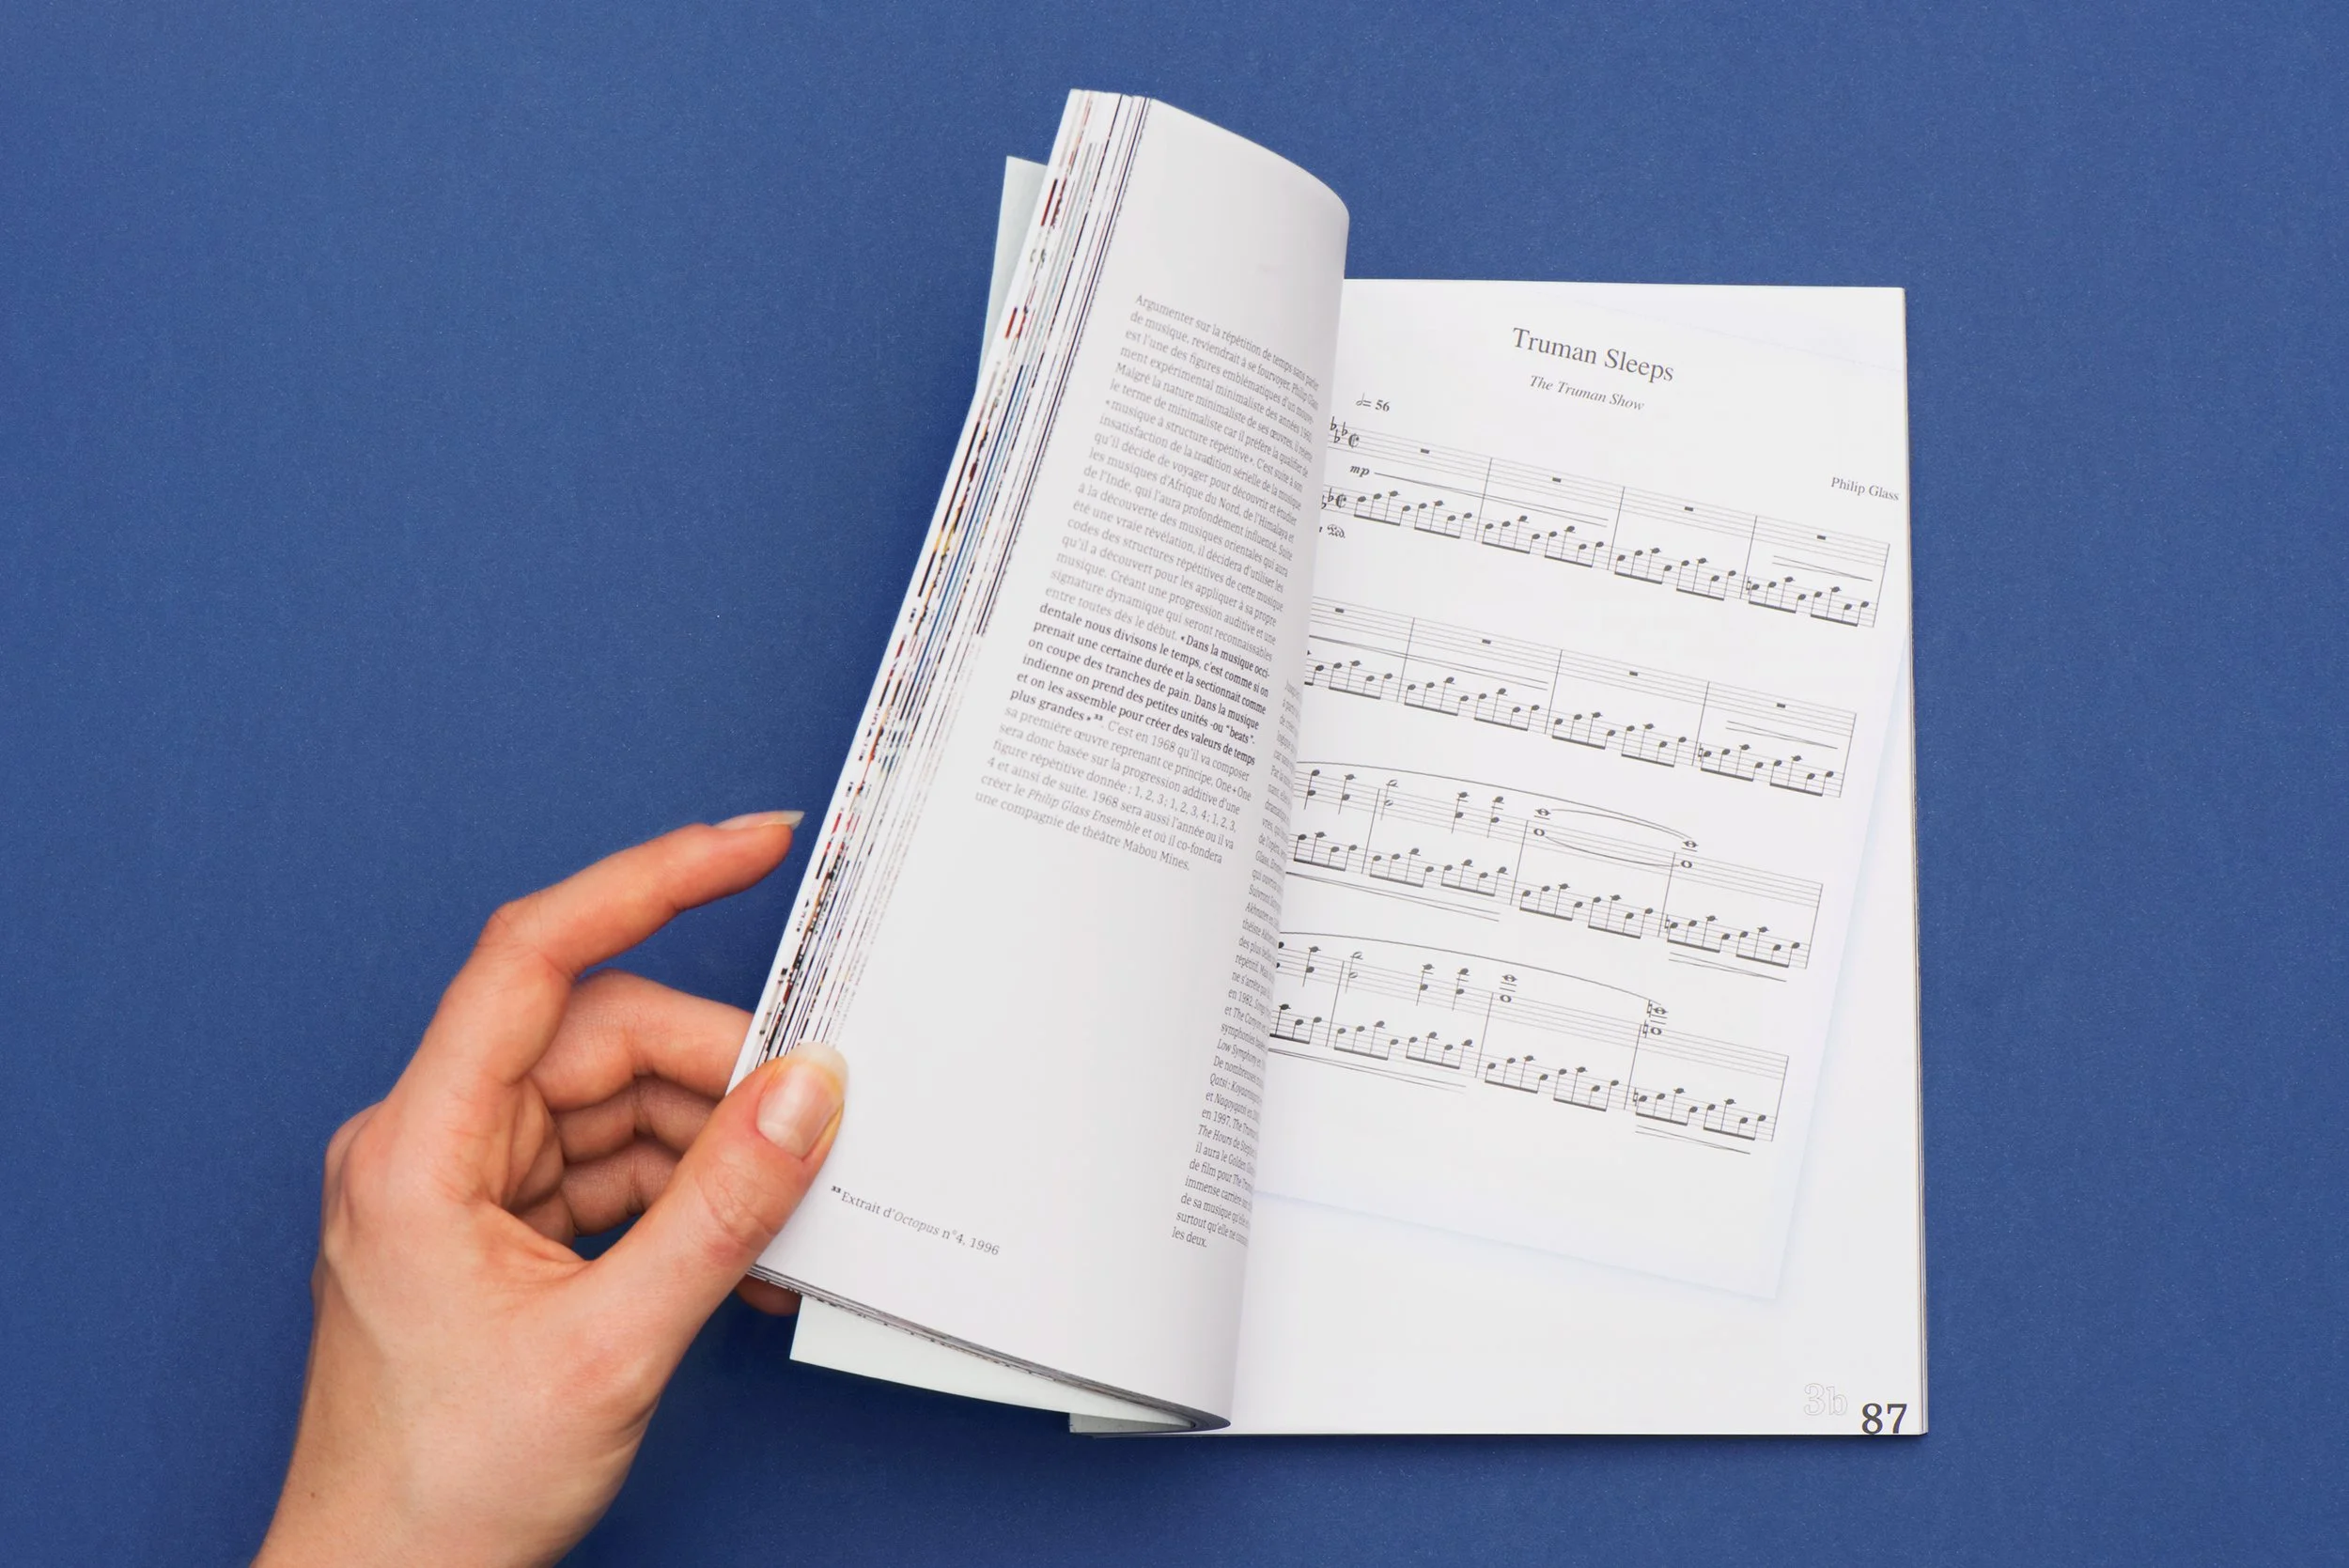 Argumenter sur la répétition de temps sans parler
de musique, reviendrait à se fourvoyer. Philip Glass
est l'une des figures emblématiques d'un mouve-
ment expérimental minimaliste des années 1960.
Malgré la nature minimaliste de ses œuvres, il rejette
le terme de minimaliste car il préfère la qualifier de
« musique à structure répétitive ». C'est suite à son
insatisfaction de la tradition sérielle de la musique
qu'il décide de voyager pour découvrir et étudier
les musiques d'Afrique du Nord, de l'Himalaya et
de l'Inde, qui l'aura profondément influencé. Suite
à la découverte des musiques orientales qui aura
été une vraie révélation, il décidera d'utiliser les
codes des structures répétitives de cette musique
qu'il a découvert pour les appliquer à sa propre
musique. Créant une progression auditive et une
signature dynamique qui seront reconnaissables
entre toutes dès le début. « Dans la musique occi-
dentale nous divisons le temps, c'est comme si on
prenait une certaine durée et la sectionnait comme
on coupe des tranches de pain. Dans la musique
indienne on prend des petites unités -ou "beats"-
et on les assemble pour créer des valeurs de temps
plus grandes » ³³. C'est en 1968 qu'il va composer
sa première œuvre reprenant ce principe. One+One
sera donc basée sur la progression additive d'une
figure répétitive donnée : 1, 2, 3; 1, 2, 3, 4; 1, 2, 3,
4 et ainsi de suite. 1968 sera aussi l'année ou il va
créer le Philip Glass Ensemble et où il co-fondera
une compagnie de théâtre Mabou Mines.
³³ Extrait d'Octopus n°4, 1996
répétitif.
ne s'arrête
en 1982,
et The Canyon
symphonies
Low Symphony
De nombreuses
Qatsi :
et Naqoyqatsi en
en 1997, The
The Hours de
il aura le Golden
de film pour The
immense carrière
de sa musique qu'elle
surtout qu'elle ne
les deux.
Truman Sleeps
The Truman Show
= 56
Philip Glass
mp
3b
87